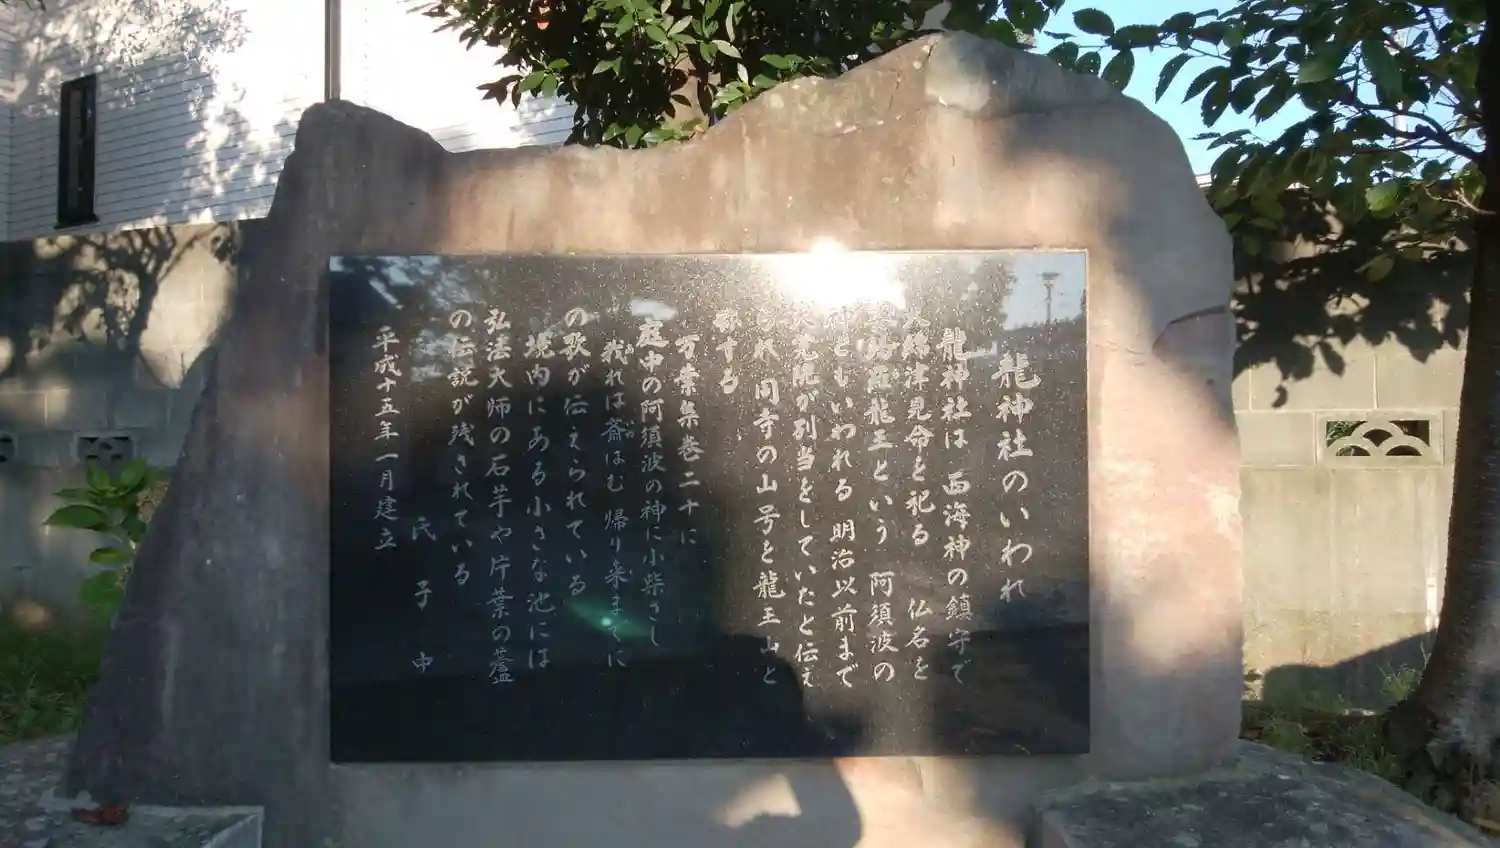 龍神社のいわれ
龍神社は 西海神の鎮守で
綿津見命を祀る 仏名を
羅龍王という 阿須波の
神ともいわれる 明治以前まで
院が別当をしていたと伝え
られ 同寺の山号を龍王山と
称する
万葉集巻二十に
庭中の阿須波の神に小柴さし
我れは斎はむ 帰り来までに
の歌が伝えられている
境内にある小さな池には
弘法大師の石芋や片葉の蘆
の伝説が残されている
氏子中
平成十五年一月建立